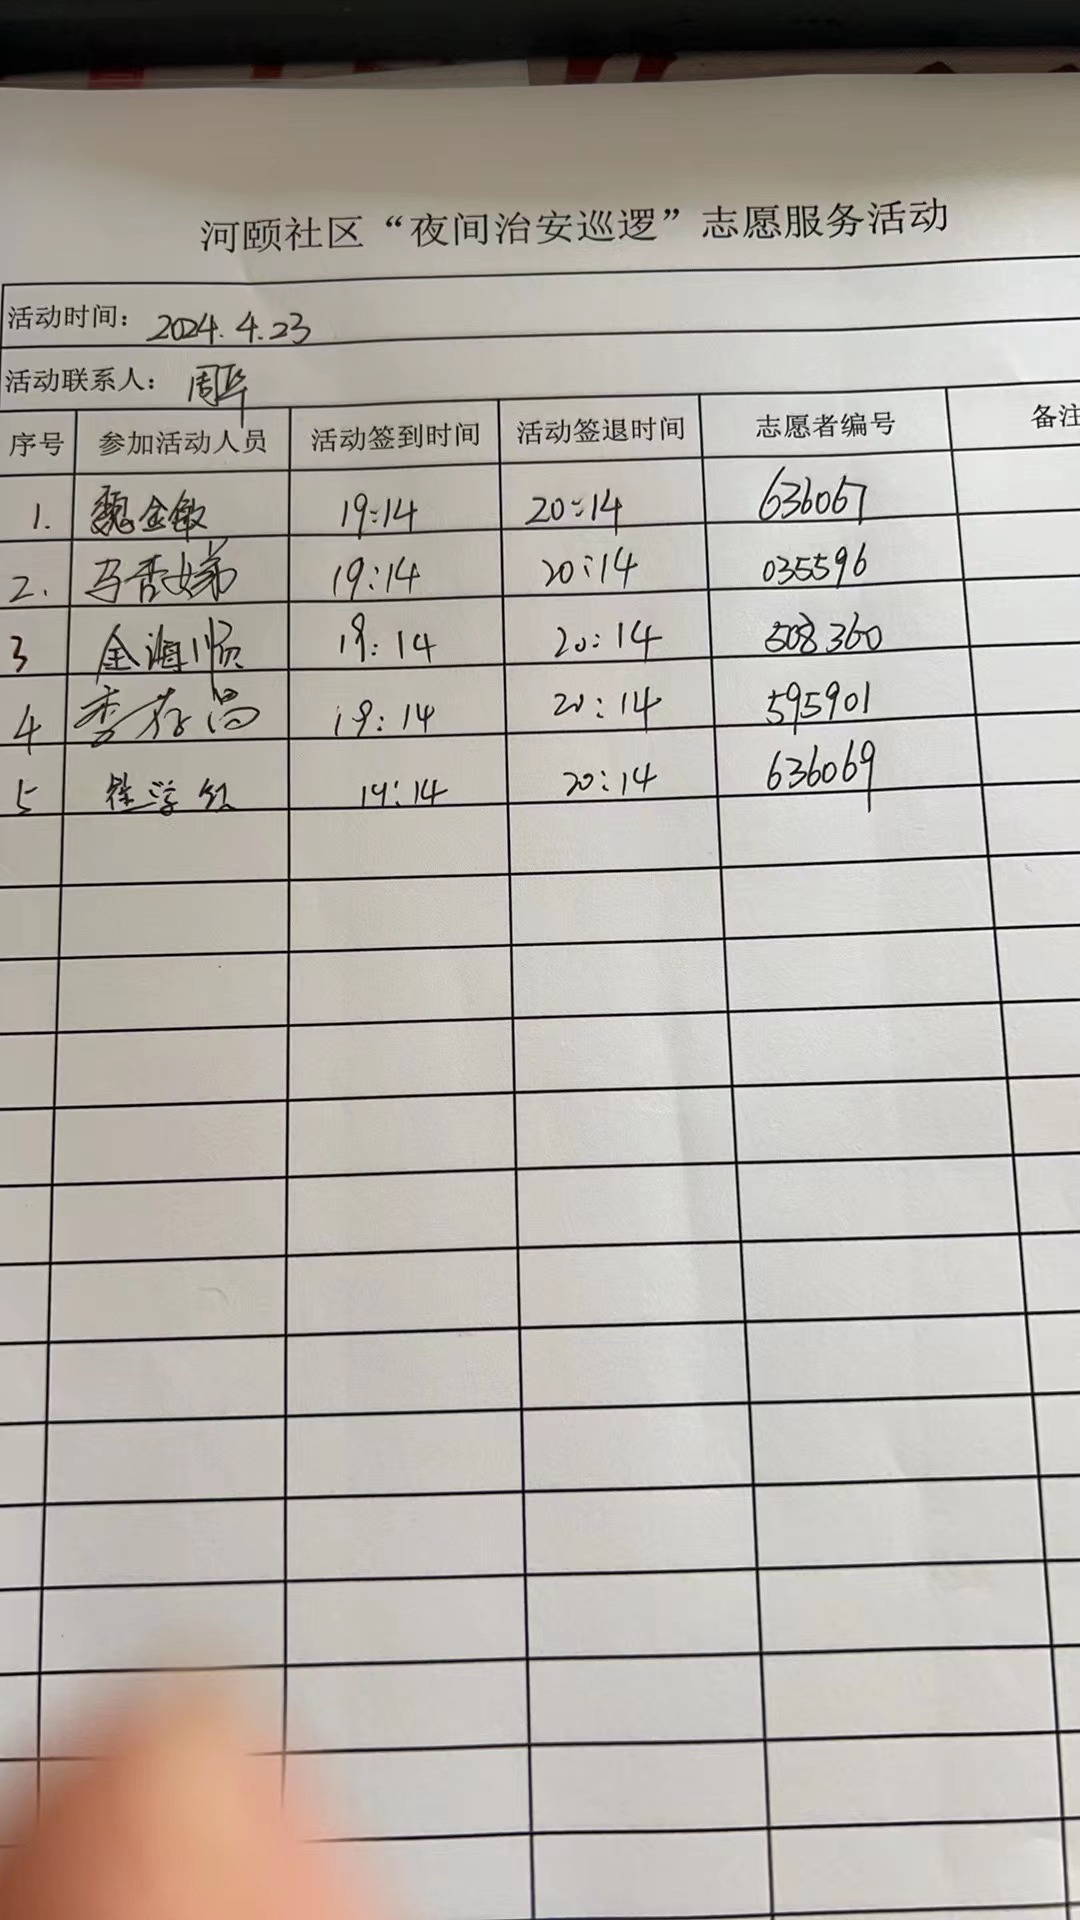 河颐社区“夜间治安巡逻”志愿服务活动
活动时间：2024.4.23
活动联系人：周华
序号 参加活动人员 活动签到时间 活动签退时间 志愿者编号 备注
1. 魏金敏 19:14 20:14 636067
2. 马秀娣 19:14 20:14 035596
3 金海顺 19:14 20:14 508360
4 季存昌 19:14 20:14 595901
5 19:14 20:14 636069